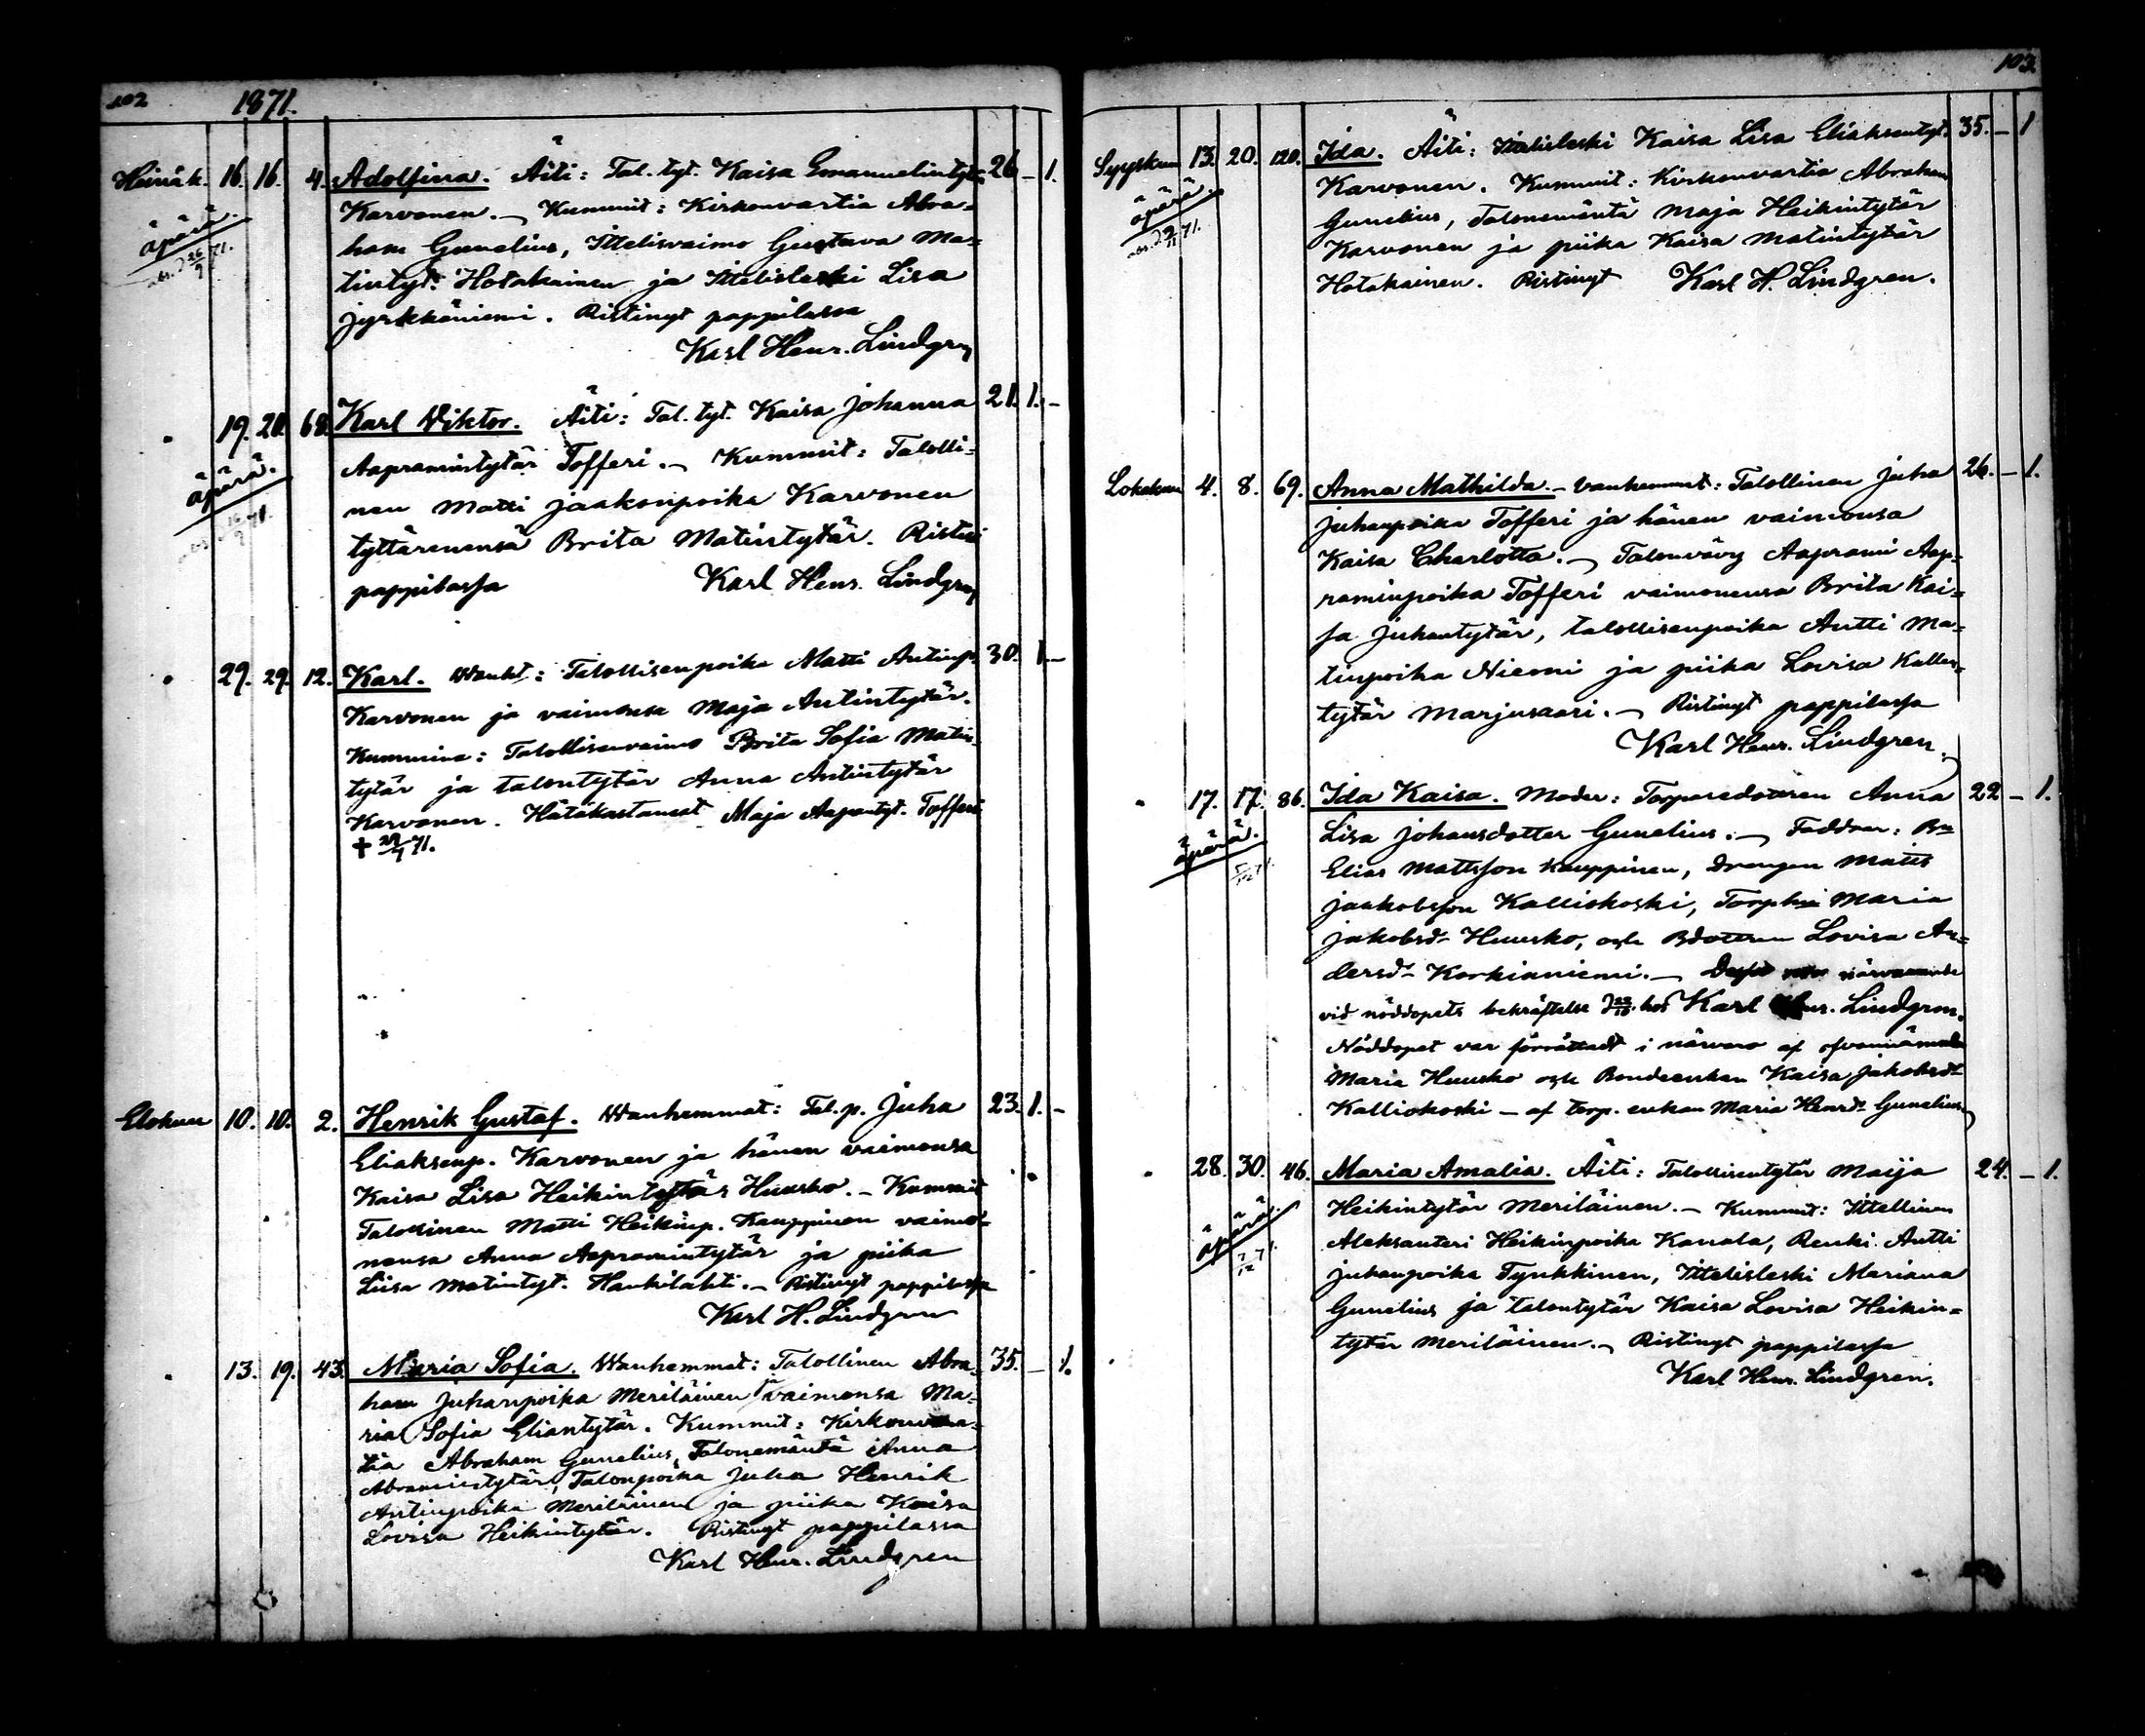 102
1871.
Heinäk. 16. 16. 4. Adolfina. Äiti: Tal. tyt. Kaisa Emanuelintyt. 26 – 1.
äpärä.
Karvonen. – Kummit: Kirkonvartia Abra=
ham Gunelius, Ittelisvaimo Gustava Ma=
tintyt. Hotakainen ja Ittelisleski Lisa
Jyrkkäniemi. Ristinyt pappilassa
Karl Henr. Lindgren
" 19. 20. 68. Karl Viktor. Äiti: Tal. tyt. Kaisa Johanna 21. 1. –
äpärä.
Aapramintytär Tofferi. – Kummit: Talolli=
nen Matti Jaakonpoika Karvonen
tyttärenensä Brita Matintytär. Ristini
pappilassa Karl Henr. Lindgren
" 29. 29. 12. Karl. Wanht: Talollisenpoika Matti Antinp. 30. 1. –
Karvonen ja vaimonsa Maja Antintytär.
Kummina: Talollisenvaimo Brita Sofia Matin=
tytär ja talontytär Anna Antintytär
Karvonen. Hätäkastanut Maja Aapontyt. Tofferi
† 29/7 71.
Elokuu 10. 10. 2. Henrik Gustaf. Wanhemmat: Tal. p. Juha 23. 1. –
Eliaksenp. Karvonen ja hänen vaimonsa
Kaisa Lisa Heikintytär Huusko. – Kummit
Talollinen Matti Heikinp. Kauppinen vaimo=
nensa Anna Aapramintytär ja piika
Liisa Matintyt. Haukilahti. – Ristinyt pappilassa
Karl H. Lindgren
" 13. 19. 43. Maria Sofia. Wanhemmat: Talollinen Abra= 35. – 1.
ham Juhanpoika Meriläinen ja vaimonsa Ma=
ria Sofia Eliantytär. Kummit: Kirkonvar=
tia Abraham Gunelius, Talonemäntä Anna
Abramintytär, Talonpoika Juha Henrik
Antinpoika Meriläinen ja piika Kaisa
Lovisa Heikintytär. Ristinyt pappilassa
Karl Henr. Lindgren
103
Syyskuu 13. 20. 120. Ida. Äiti: Ittelisleski Kaisa Lisa Eliaksentyt. 35. – 1
äpärä.
Karvonen. Kummit: Kirkonvartia Abraham
Gunelius, Talonemäntä Maja Heikintytär
Karvonen ja piika Kaisa Matintytär
Hotakainen. Ristinyt Karl H. Lindgren.
Lokakuu 4. 8. 69. Anna Mathilda. – Vanhemmat: Talollinen Juha 26. – 1.
Juhanpoika Tofferi ja hänen vaimonsa
Kaisa Charlotta. – Talonvävy Aaprami Aap=
raminpoika Tofferi vaimonensa Brita Kai=
sa Juhantytär, talollisenpoika Antti Ma=
tinpoika Niemi ja piika Lovisa Kallen=
tytär Marjusaari. – Ristinyt pappilassa
Karl Henr. Lindgren.
" 17. 17. 86. Ida Kaisa. Moder: Torparedottren Anna 22 – 1.
äpärä.
Lisa Johansdotter Gunelius. – Faddrar: Bn
Elias Mattsson Kauppinen, Drengen Matts
Jaakobsson Kalliokoski, Torphu Maria
Jakobsd. Huusko, och Bdottren Lovisa An=
dersd. Korkianiemi. – närvarande
vid nöddopets bekräftelse hos Karl Henr. Lindgren.
Nöddopet var förrättadt i närvaro af ofvannämnda
Maria Huusko och Bondeenkan Kaisa Jakobsd.
Kalliokoski – af torp. enkan Maria Henrsd. Gunelius.
" 28. 30. 46. Maria Amalia. Äiti: Talollisentytär Maija 24. – 1.
äpärä.
Heikintytär Meriläinen. – Kummit: Ittellinen
Aleksanteri Heikinpoika Kanala, Renki Antti
Juhanpoika Tynkkinen, Ittelisleski Mariana
Gunelius ja talontytär Kaisa Lovisa Heikin=
tytär Meriläinen. – Ristinyt pappilassa
Karl Henr. Lindgren.